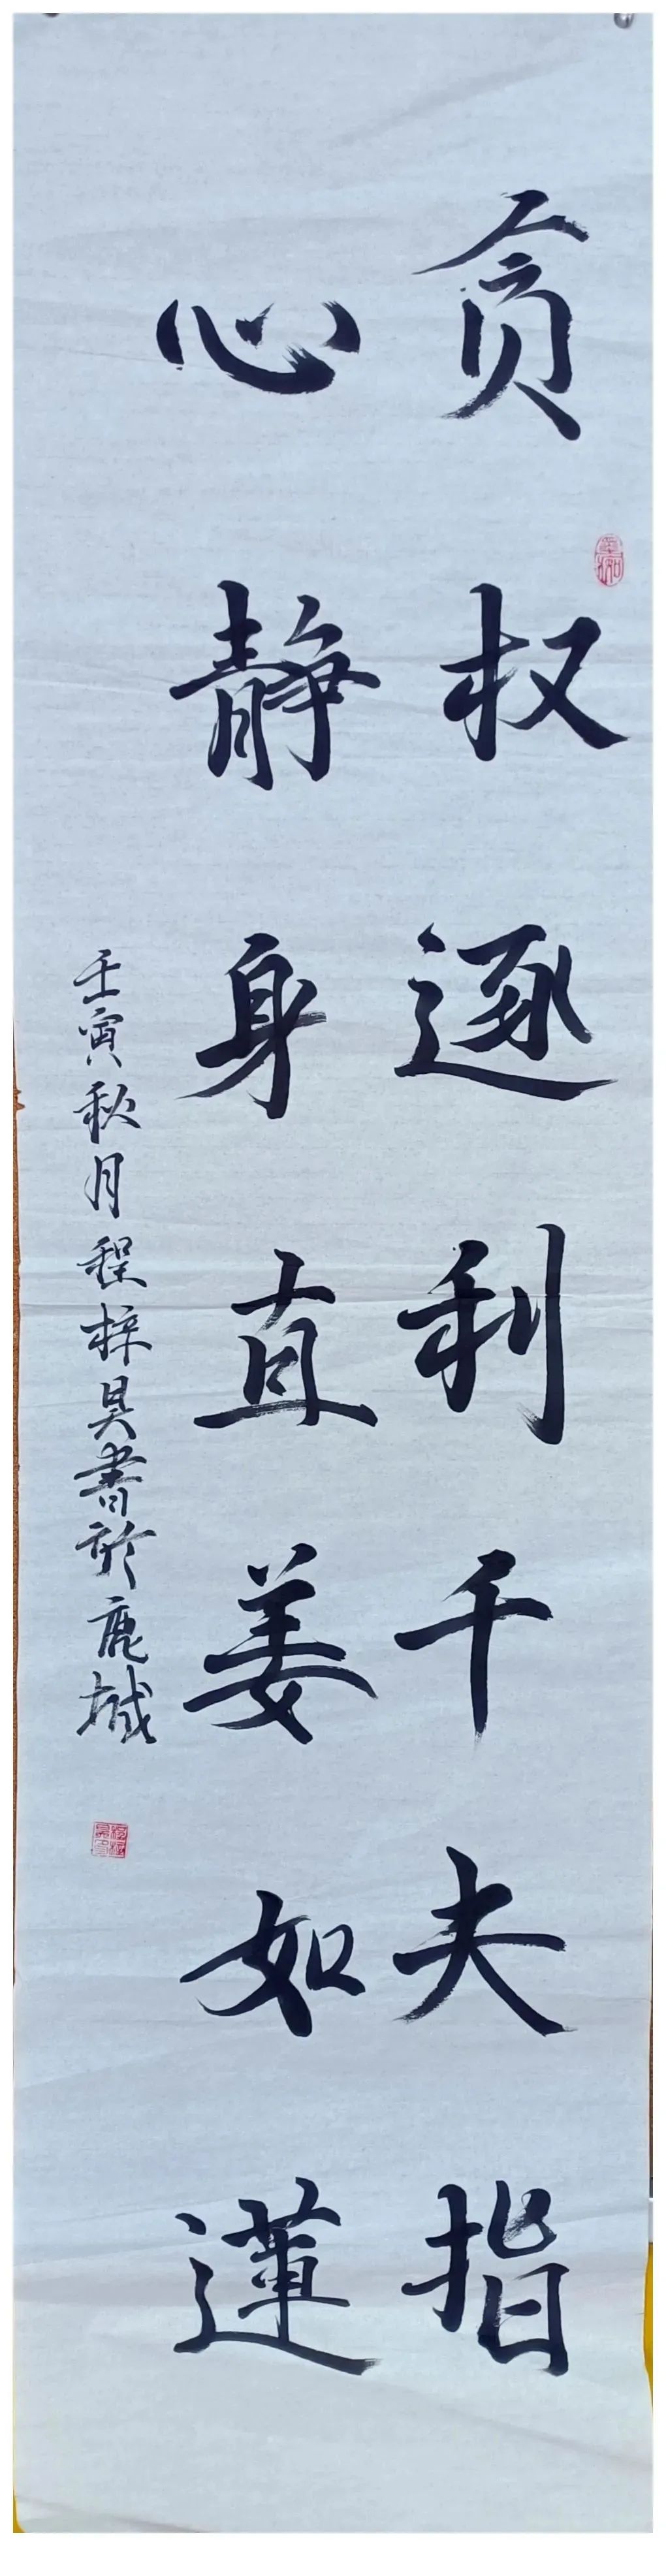 贪权逐利千夫指
心静身直美如蓮
壬寅秋月程梓昊書於鹿城